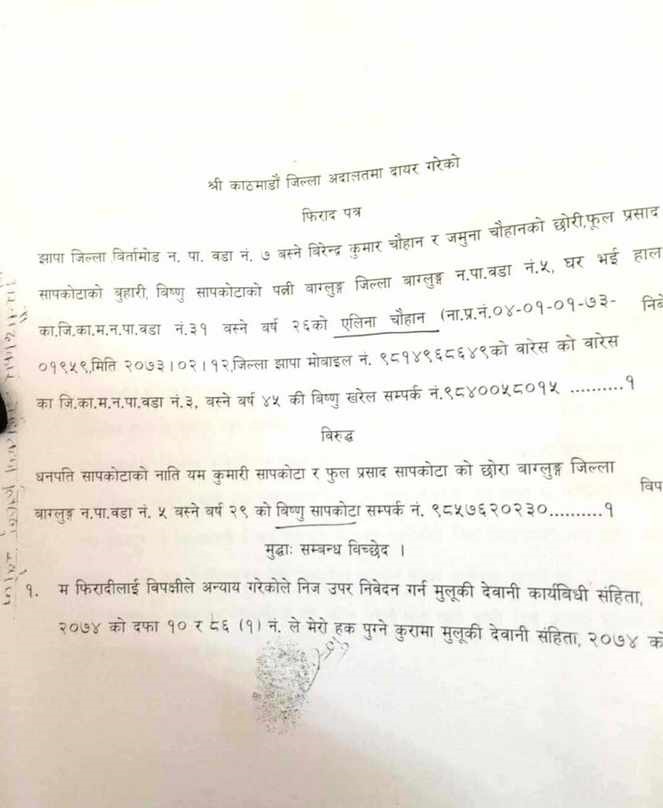 श्री काठमाडौं जिल्ला अदालतमा दायर गरेको
फिराद पत्र
झापा जिल्ला विर्तामोड न. पा. वडा नं. ७ बस्ने विरेन्द्र कुमार चौहान र जमुना चौहानको छोरी,फूल प्रसाद
सापकोटाको बुहारी, विष्णु सापकोटाको पत्नी बाग्लुङ्ग जिल्ला बाग्लुङ्ग न.पा.वडा नं.५, घर भई हाल
का.जि.का.म.न.पा.वडा नं.३१ बस्ने वर्ष २६को एलिना चौहान (ना.प्र.नं.०४-०१-०१-७३-
०१९५९,मिति २०७३।०२।१२,जिल्ला झापा मोबाइल नं. ९८१४९६८६४९को वारेस को वारेस
का जि.का.म.न.पा.वडा नं.३, बस्ने वर्ष ४५ की विष्णु खरेल सम्पर्क नं.९८४००५८०१५ ..........१
विरुद्ध
धनपति सापकोटाको नाति यम कुमारी सापकोटा र फुल प्रसाद सापकोटा को छोरा बाग्लुङ्ग जिल्ला
बाग्लुङ्ग न.पा.वडा नं. ५ बस्ने वर्ष २९ को विष्णु सापकोटा सम्पर्क नं. ९८५७६२०२३०..........१
मुद्धाः सम्बन्ध विच्छेद ।
१. म फिरादीलाई विपक्षीले अन्याय गरेकोले निज उपर निवेदन गर्न मुलूकी देवानी कार्यविधी संहिता,
२०७४ को दफा १० र ८६ (१) नं. ले मेरो हक पुग्ने कुरामा मुलूकी देवानी संहिता, २०७४ क